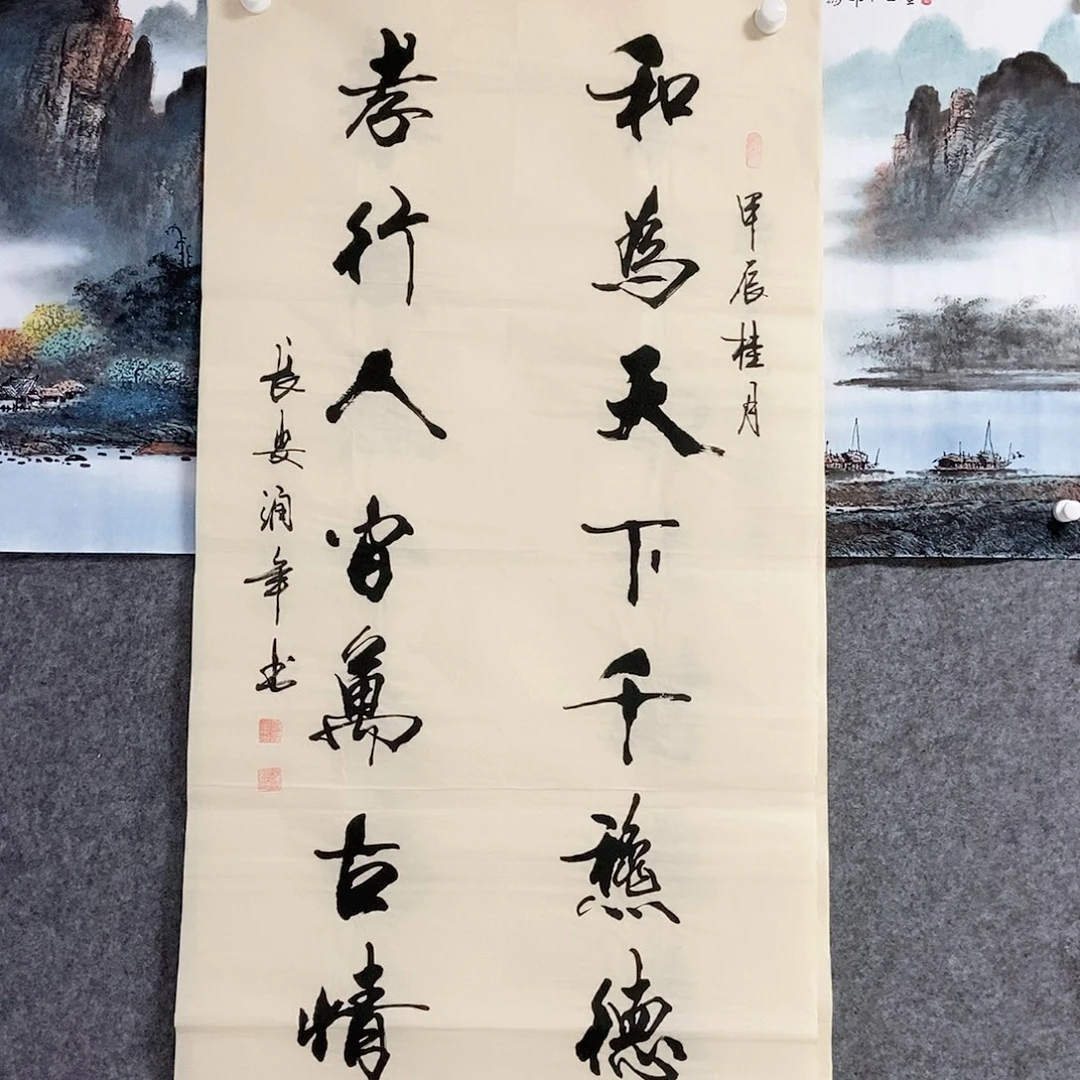 甲辰桂月
和為天下千秋德
孝行人間萬古情
長安潤年书